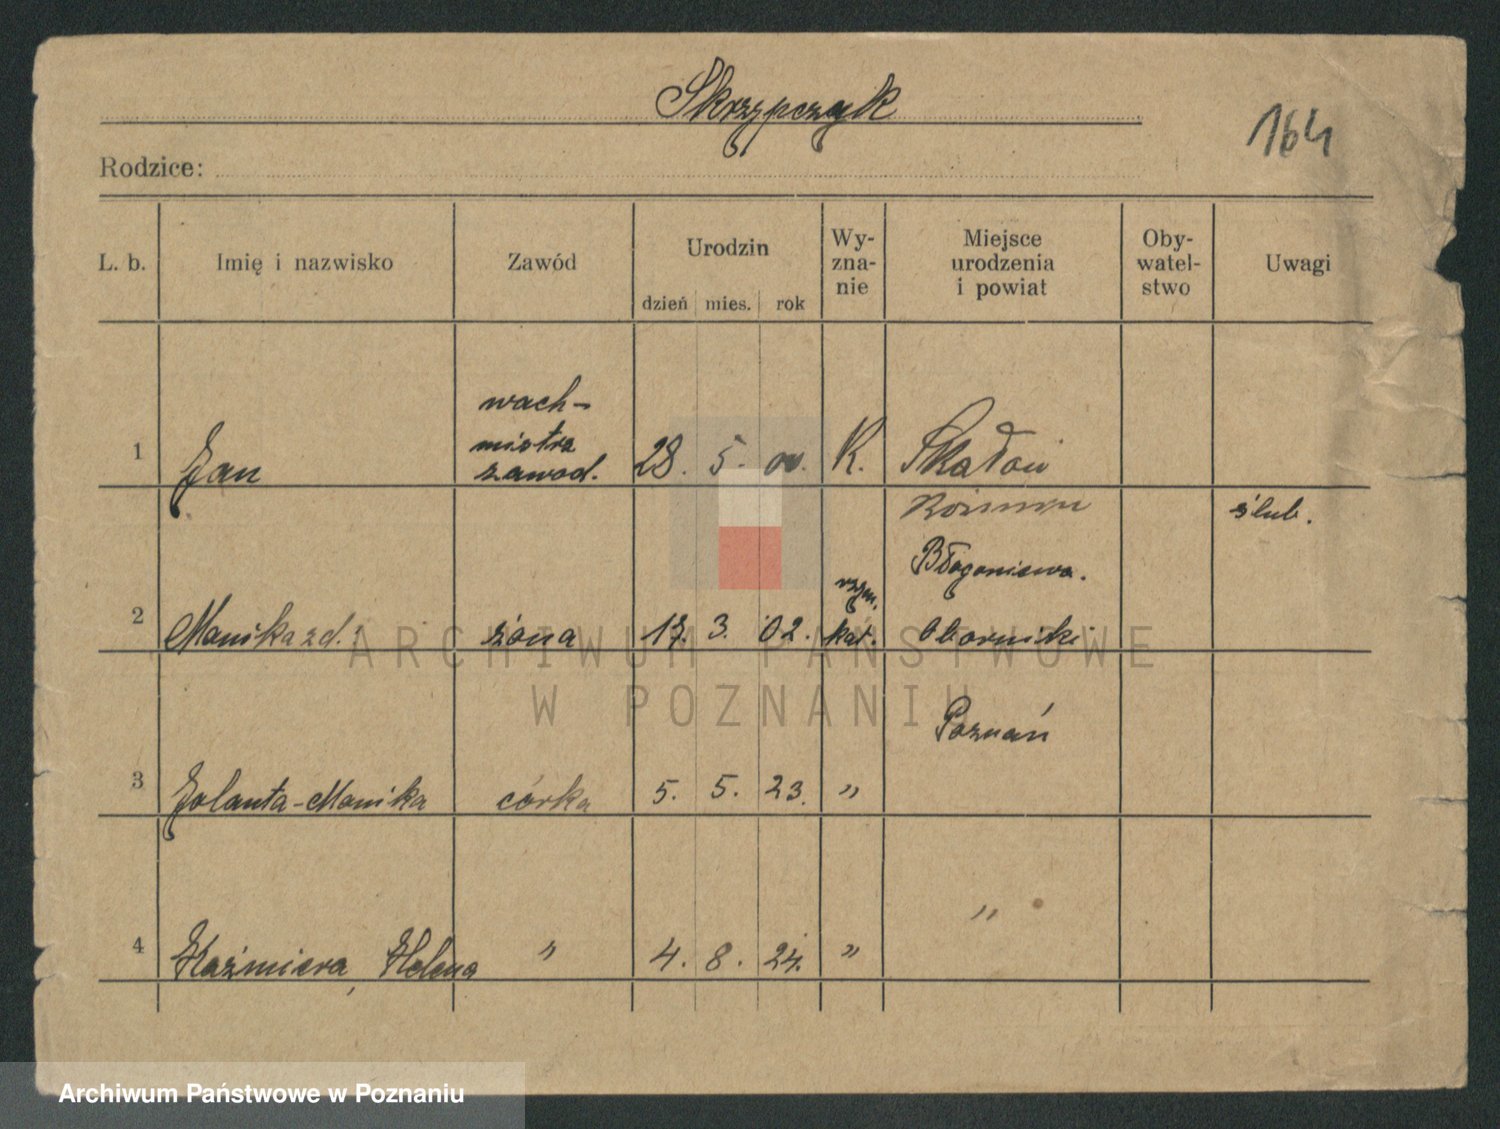 Skrzypczyk
164
Rodzice:
L. b. Imię i nazwisko Zawód Urodzin dzień mies. rok Wy-zna-nie Miejsce urodzenia i powiat Oby-watel-stwo Uwagi
wach-
mistrz
zawod.
1 Jan 28. 5. K. Skałów
ślub.
Błogoniewa.
rzym.
2 Monika zd. żona 3. 02. kat. Oborniki
Poznań
3 Jolanta-Monika córka 5. 5. 23. "
"
4 Kaźmiera, Helena " 4. 8. 24. "
ARCHIWUM PAŃSTWOWE
W POZNANIU
Archiwum Państwowe w Poznaniu